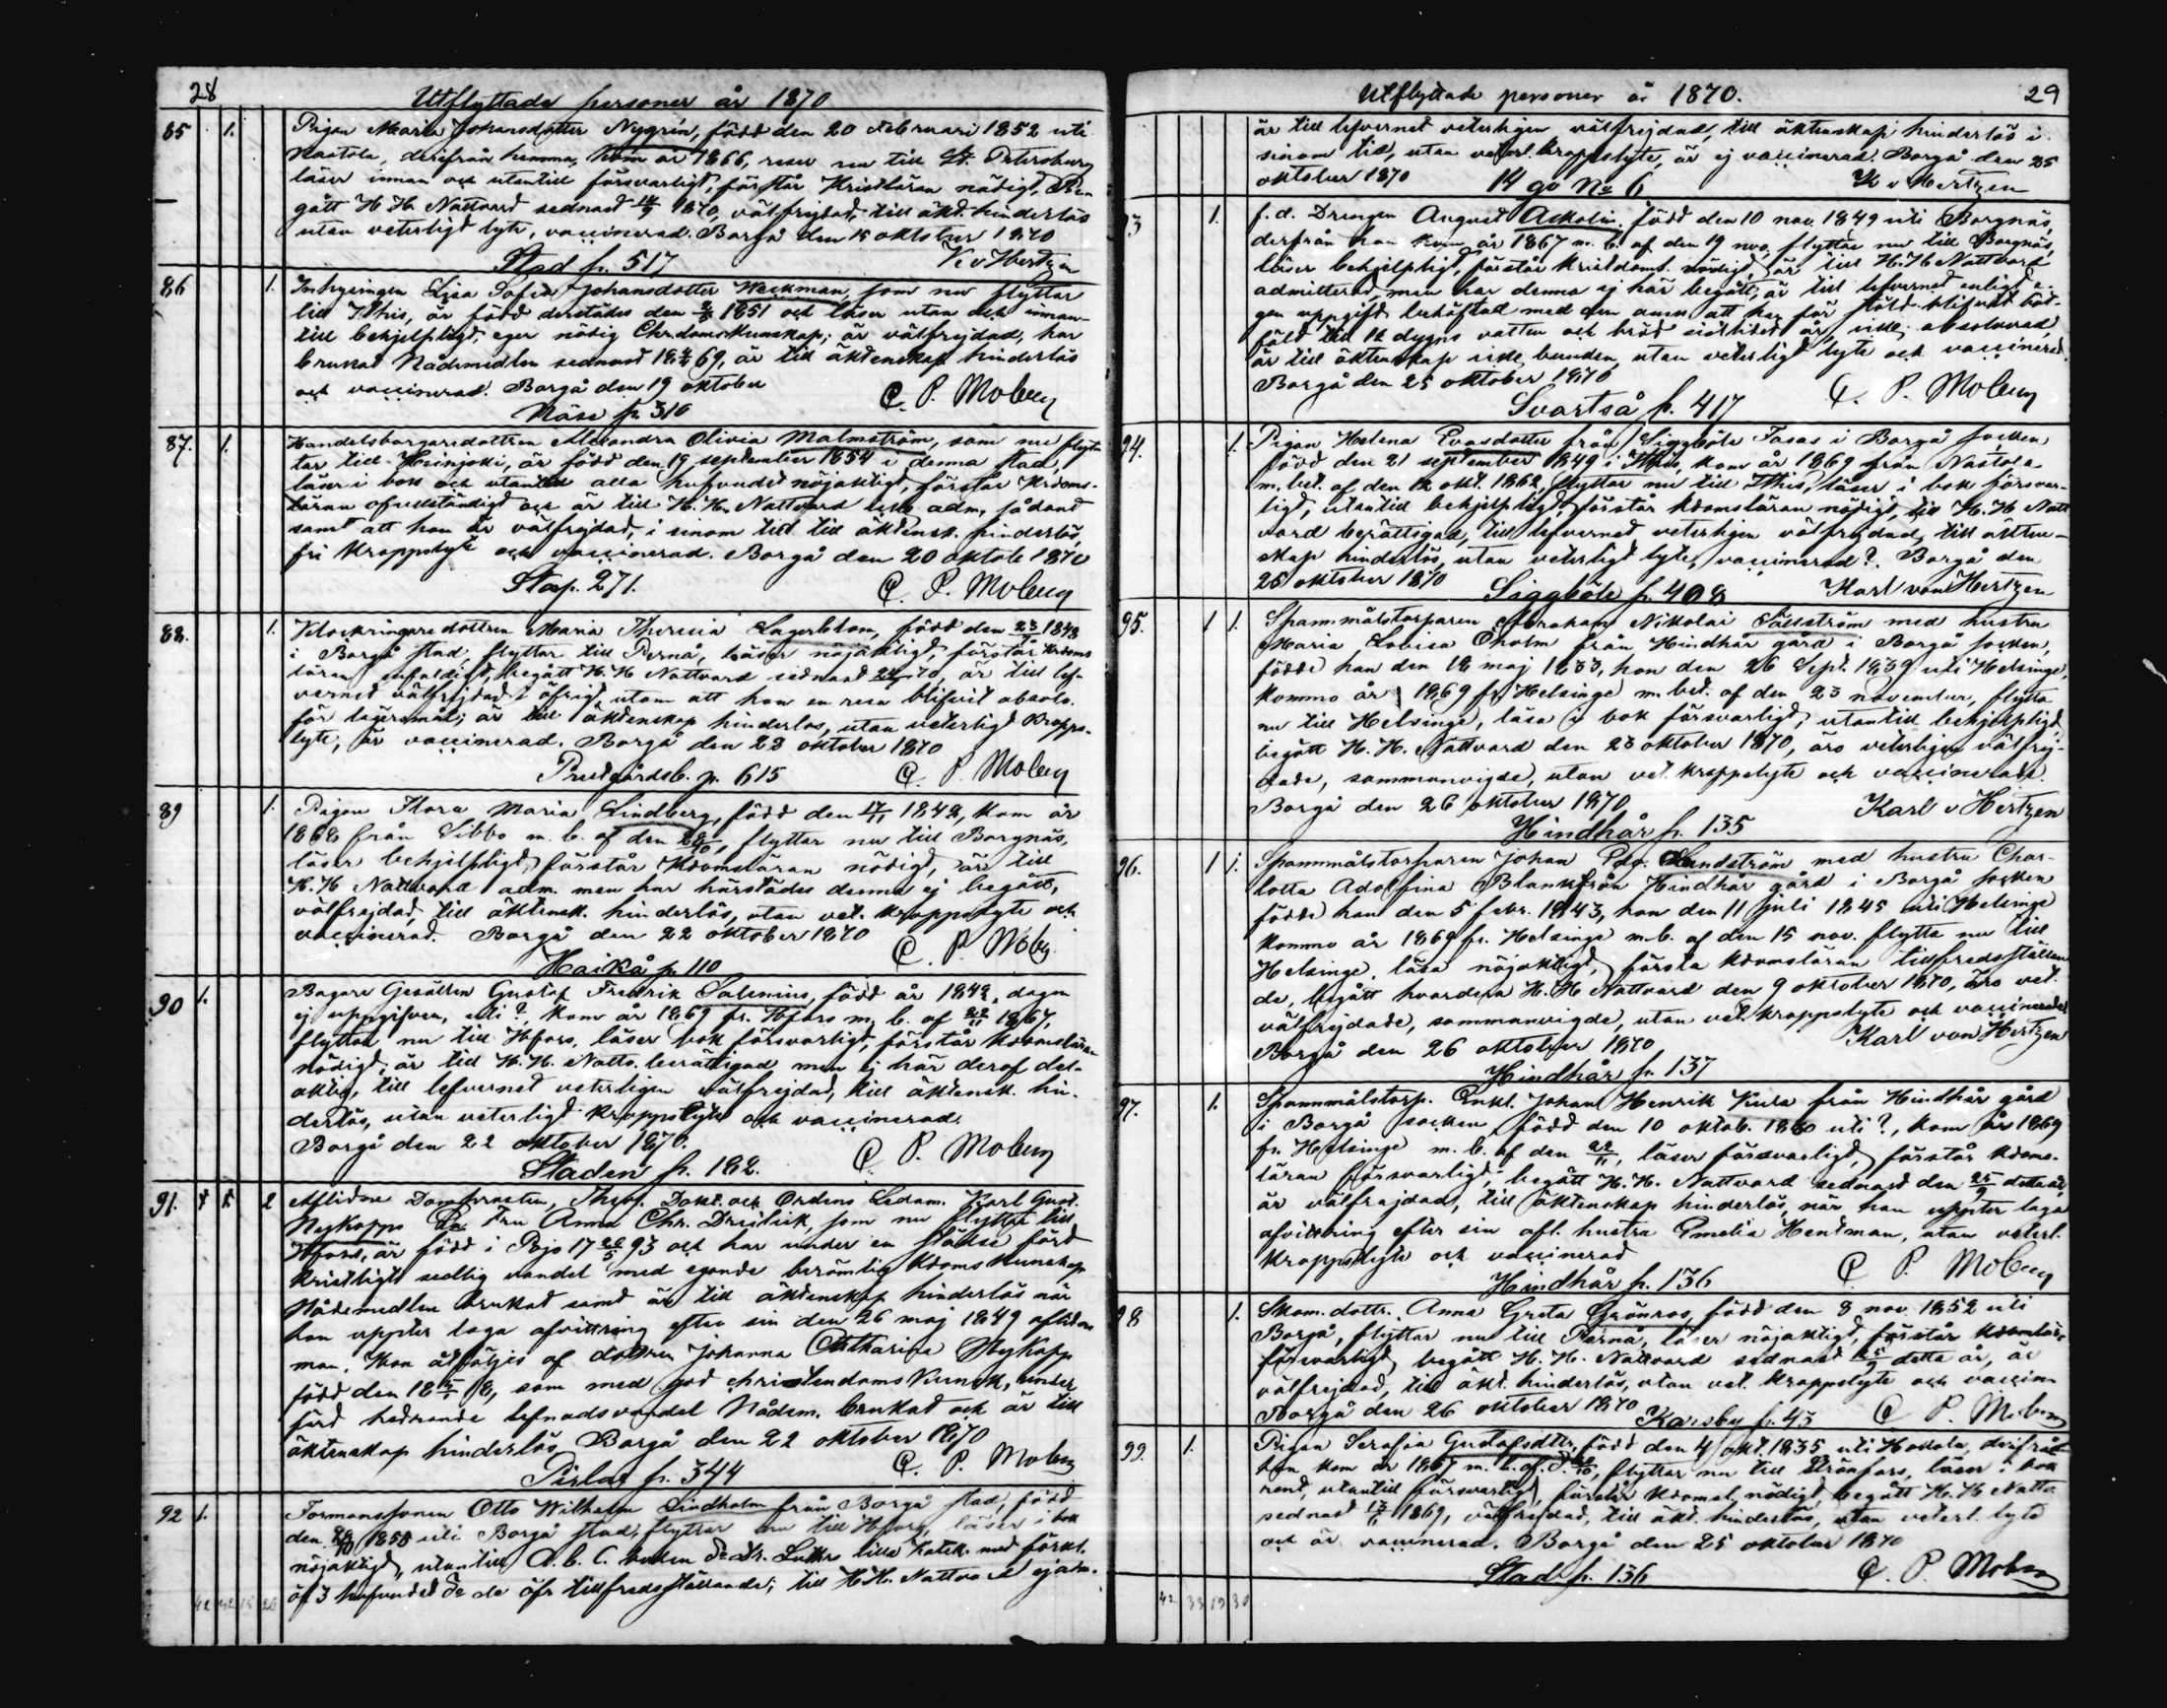 28
Utflyttade personer år 1870
85 1. Pigan Maria Johansdotter Nygrén, född den 20 Februari 1852 uti
Nastola, derifrån hemma, kom år 1866, reser nu till St. Petersburg
läser innan och utantill försvarligt, förstår Kristläran nödigt, Be-
gått H. H. Nattvard sednast 1870, välfrejdad, till äkt. hinderlös
utan veterligt lyte, vaccinerad. Borgå den 15 oktober 1870
Stad p. 517 K. v Hertzen
86 1. Inhysingen Lisa Sofia Johansdotter Weckman, som nu flyttar
till Ithis, är född derstädes den 1851 och läser utan och innan-
till behjelpligt, eger nödig Chrdomskunskap; är välfrejdad, har
brukat Nådemedlen sednast 69, är till äktenskap hinderlös
och vaccinerad. Borgå den 19 oktober
Näse p. 310 C. P. Moberg
87. 1. Handelsborgaredottren Alexandra Olivia Malmström, som nu flyt-
tar till Heinjoki, är född den 19 september 1854 i denna stad,
läser i bok och utantill alla hufvudst nöjaktigt, förstår Krdoms-
läran ofullständigt och är till H. H. Nattvard icke adm. sådant
samt att hon är välfrejdad, i sinom tid till äktensk. hinderlös,
fri Kroppslyte och vaccinerad. Borgå den 20 oktob 1870
Sta p. 271. C. P. Moberg
88. 1. Klockringaredottren Maria Theresia Lagerblom, född den 23 1848
i Borgå stad, flyttar till Pernå, läser nöjaktigt, förstår Krdoms
läran enfaldigt, begått H. H. Nattvard sednast 70, är till lef-
vernet välfrejdad i öfrigt utom att hon en resa blifvit absolv.
för lägersmål; är till äktenskap hinderlös, utan veterligt Kropps-
lyte, är vaccinerad. Borgå den 22 oktober 1870
Prestgårdsb. p. 615 C. P. Moberg
89 1. Pigan Flora Maria Lindberg, född den 1842, kom år
1868 från Sibbo m. b. af den, flyttar nu till Borgnäs,
läser behjelpligt, förstår Kdomsläran nödigt, är till
H. H Nattvard adm. men har härstädes denna ej begått,
välfrejdad, till äktensk. hinderlös, utan vet. Kroppslyte och
vaccinerad. Borgå den 22 oktober 1870
Haikå p. 110 C. P. Mobg
90 1. Bagare Gesällen Gustaf Fredrik Salenius, född år 1842, dagen
ej uppgifven, uti? kom år 1869 fr. Hfors m. b. af 22/11 1867,
flyttar nu till Hfors, läser bok försvarligt, förstår Kdomsläran
nödigt, är till H. H. Nattv. berättigad, men ej här deraf del-
aktig, till lefvernet veterligen välfrejdad, till äktensk. hin-
derlös, utan veterligt Kroppslyte och vaccinerad.
Borgå den 22 oktober 1870.
Staden p. 182. C. P. Moberg
91. 2 Aflidne Domprosten, Theol. Dokt. och Ordens Ledam. Karl Gust.
Nykopps Enka Fru Anna Chr. Dreilick, som nu flyttar till
Hfors, är född i Pojo 17 93 och har under en städse förd
kristligt sedlig vandel med egande berömlig Kdoms Kunskap
Nådemedlen brukat samt är till äktenskap hinderlös när
hon uppter laga afvittring efter sin den 26 maj 1849 aflidne
man. Hon åtföljes af dottren Johanna Catharina Nykopp
född den 18, som med god christendoms Kunsk, under
förd hedrande lefnadsvandel Nådem. brukat och är till
äktenskap hinderlös. Borgå den 22 oktober 1870
Pirlax p. 344 C. P. Moberg
92 1. Formanssonen Otto Wilhelm Lindholm från Borgå stad, född
den 1855 uti Borgå stad, flyttar nu till Hfors, läser i bok
nöjaktigt, utantill A. b. C. boken Dr. Luthers lilla Katek. med förkl.
öf 3 hufvudst. de öfr tillfredsställande; till H. H. Nattvard ej adm.
42 42 15 26
Utflyttade personer år 1870. 29
är till lefvernet veterligen välfrejdad, till äktenskap hinderlös i
sinom tid, utan veterl. kroppslyte, är ej vaccinerad. Borgå den 25
oktober 1870 14 go No 6 K v Hertzen
93 1. f. d. Drengen August Askolin, född den 10 nov. 1849 uti Borgnäs,
derfrån han kom år 1867 m. b. af den 19 nov, flyttar nu till Borgnäs,
läser behjelpligt, förstår kristdomsl. nödigt, är till H. H Nattvard
admitterad, men har denna ej här begått; är till lefvernet enligt e-
gen uppgift behäftad med den anm. att han för stöld blifvit böt-
fäld till 12 dygns vatten och bröd sistlidet år, icke absolverad,
är till äktenskap icke bunden, utan veterligt lyte och vaccinerad.
Borgå den 25 oktober 1870 C. P. Moberg
Svartså p. 417
94. 1. Pigan Helena Evasdotter från Siggböle Tasas i Borgå socken
född den 21 september 1849 i Ithis, kom år 1869 från Nastola
m. bet. af den 12 okt. 1862, flyttar nu till Ithis, läser i bok försvar-
ligt, utantill behjelpligt, förstår kdomsläran nödigt, till H. H Natt
vard berättigad, till lefvernet veterligen välfrejdad, till äkten-
skap hinderlös, utan veterligt lyte, vaccinerad?. Borgå den
25 oktober 1870 Siggböle p. 408 Karl von Hertzen
95. 1 1. Spannmålstorparen Abraham Nikolai Sällström med hustru
Maria Lovisa Öholm från Hindhår gård i Borgå socken,
födde han den 12 maj 1833, hon den 26 Sept. 1839 uti Helsinge,
komne år 1869 fr. Helsinge m. bet. af den 23 november, flytta
nu till Helsinge, läsa i bok försvarligt, utantill behjelpligt,
begått H. H. Nattvard den 23 oktober 1870, äro veterligen välfrej-
dade, sammanvigde, utan vet. kroppslyte och vaccinerade.
Borgå den 26 oktober 1870. Karl v Hertzen
Hindhår p. 135
96. 1 1. Spannmålstorparen Johan Edv. Sandström med hustru Char-
lotta Adolfina Blank från Hindhår gård i Borgå socken
födde han den 5 febr. 1843, hon den 11 juli 1845 uti Helsinge
komne år 1869 fr. Helsinge m. b. af den 15 nov. flytta nu till
Helsinge, läsa nöjaktligt, förstå kdomsläran tillfredsställan-
de, begått hvardera H. H Nattvard den 9 oktober 1870, äro vet.
välfrejdade, sammanvigde, utan vet kroppslyte och vaccinerade
Borgå den 26 oktober 1870 Karl von Hertzen
Hindhår p. 137
97. 1. Spannmålstorp. Enkl. Johan Henrik Kiura från Hindhår gård
i Borgå socken, född den 10 oktob. uti?, kom år 1869
fr. Helsinge m. b. af den 22/11, läser försvarligt, förstår kdoms-
läran försvarligt, begått H. H. Nattvard sednast den 25/9 detta år,
är välfrejdad, till äktenskap hinderlös, när han uppter laga
afvittring efter sin afl. hustru Emelia Hentman, utan veterl.
kroppslyte och vaccinerad
Hindhår p. 136 C. P. Moberg
98 1. Skom. dottr. Anna Greta Grönros, född den 8 nov. 1852 uti
Borgå, flyttar nu till Pernå, läser nöjaktigt, förstår kdomslär
försvarligt, begått H. H. Nattvard sednast 25/9 detta år, är
välfrejdad, till äkt. hinderlös, utan vet. kroppslyte och vaccin.
Borgå den 26 oktober 1870 Karsby p. 43 C. P. Moberg
99. 1. Pigan Serafia Gustafsdtter född den 4 okt. 1835 uti Hollola, derifrån
hon kom år 1867 m. b. af d., flyttar nu till Strömfors, läser i bok
rent, utantill försvarligt, förstår kdomsl. nödigt, begått H. H Nattv.
sednast 1869, välfrejdad, till äkt. hinderlös, utan veterl. lyte
och är vaccinerad. Borgå den 25 oktober 1870
Stad p. 136 C. P. Moberg
42 33 19 30